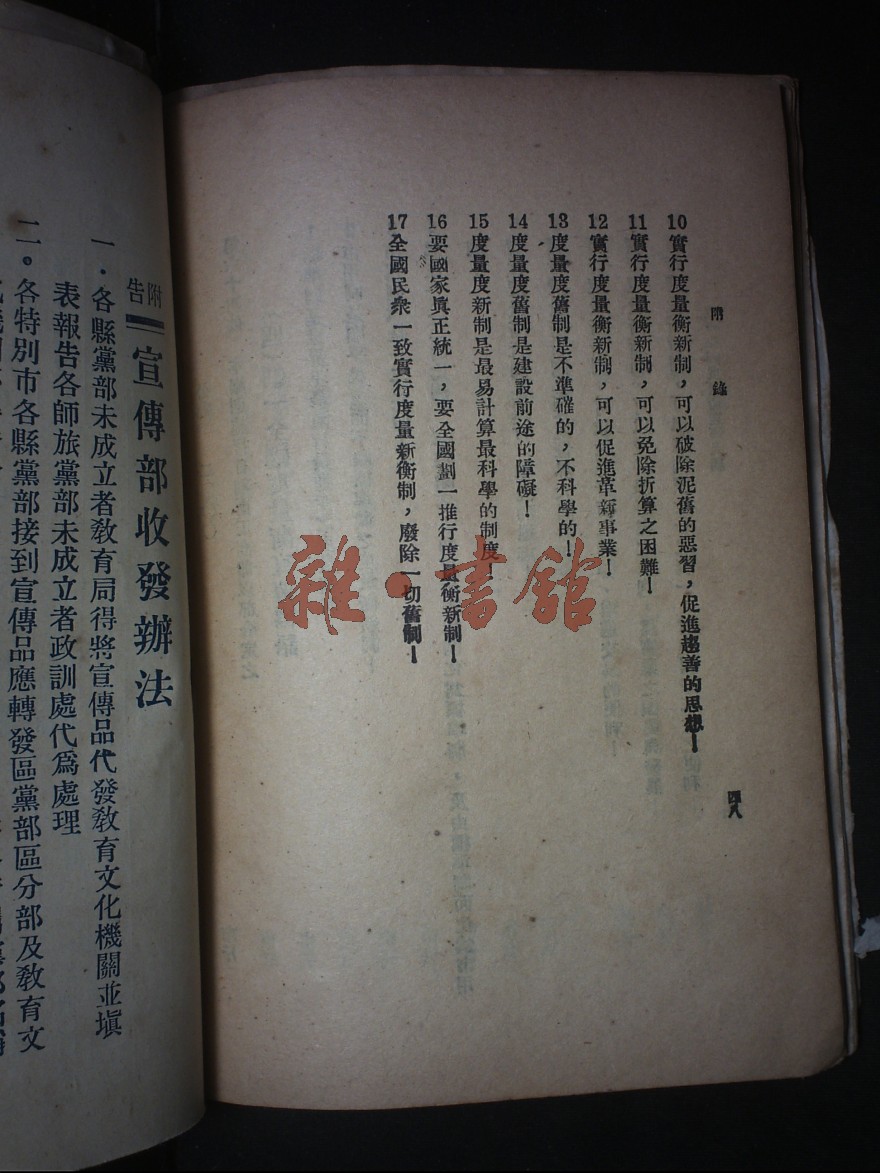 附錄
四八
10實行度量衡新制,可以破除泥舊的惡習,促進趨善的思想!
11實行度量衡新制,可以免除折算之困難!
12實行度量衡新制,可以促進革新事業!
13度量度舊制是不準確的,不科學的!
14度量度舊制是建設前途的障礙!
15度量度新制是最易計算最科學的制度!
16要國家眞正統一,要全國劃一推行度量衡新制!
17全國民衆一致實行度量新衡制,廢除一切舊制!
雜·書館
附告 宣傳部收發辦法
一.各縣黨部未成立者敎育局得將宣傳品代發敎育文化機關並塡
表報告各師旅黨部未成立者政訓處代爲處理
二。各特別市各縣黨部接到宣傳品應轉發區黨部區分部及敎育文